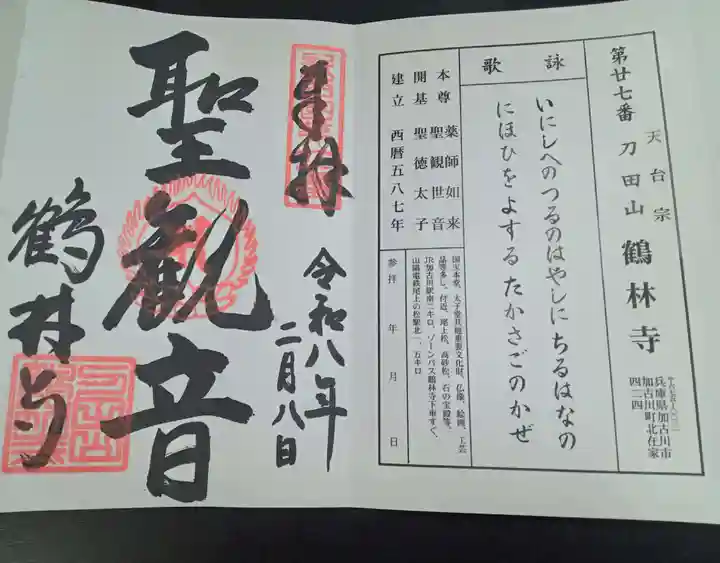 第廿七番
天台宗
刀田山 鶴林寺
兵庫県加古川市
加古川町北在家
四二四
詠歌
いにしへのつるのはやしにちるはなの
にほひをよするたかさごのかぜ
本尊 薬師如来
聖観世音
開基 聖徳太子
建立 西暦五八七年
国宝本堂、太子堂其他重要文化財、仏像、絵画、工芸
品等多し。付近、尾上松、高砂松、石の宝殿等。
JR加古川駅南二キロ、ゾーンバス鶴林寺下車すぐ、
山陽電鉄尾上の松駅北一、五キロ
参拝 年 月 日
奉拝
令和八年
二月八日
聖観音
鶴林寺